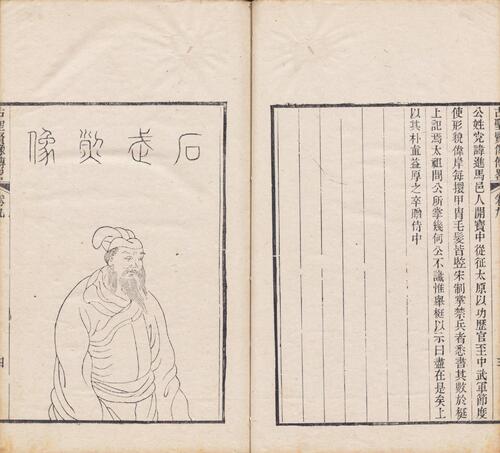 古聖賢像傳畧 卷九 三
公姓党諱進馬邑人開寶中從征太原以功歷官至中武軍節度
使形貌偉岸每擐甲冑毛髮皆竪宋制掌禁兵者悉書其數於梃
上記焉太祖問公所掌幾何公不識惟舉梃以示曰盡在是矣上
以其朴直益厚之卒贈侍中
石武烈像
古聖賢像傳畧 卷九 四